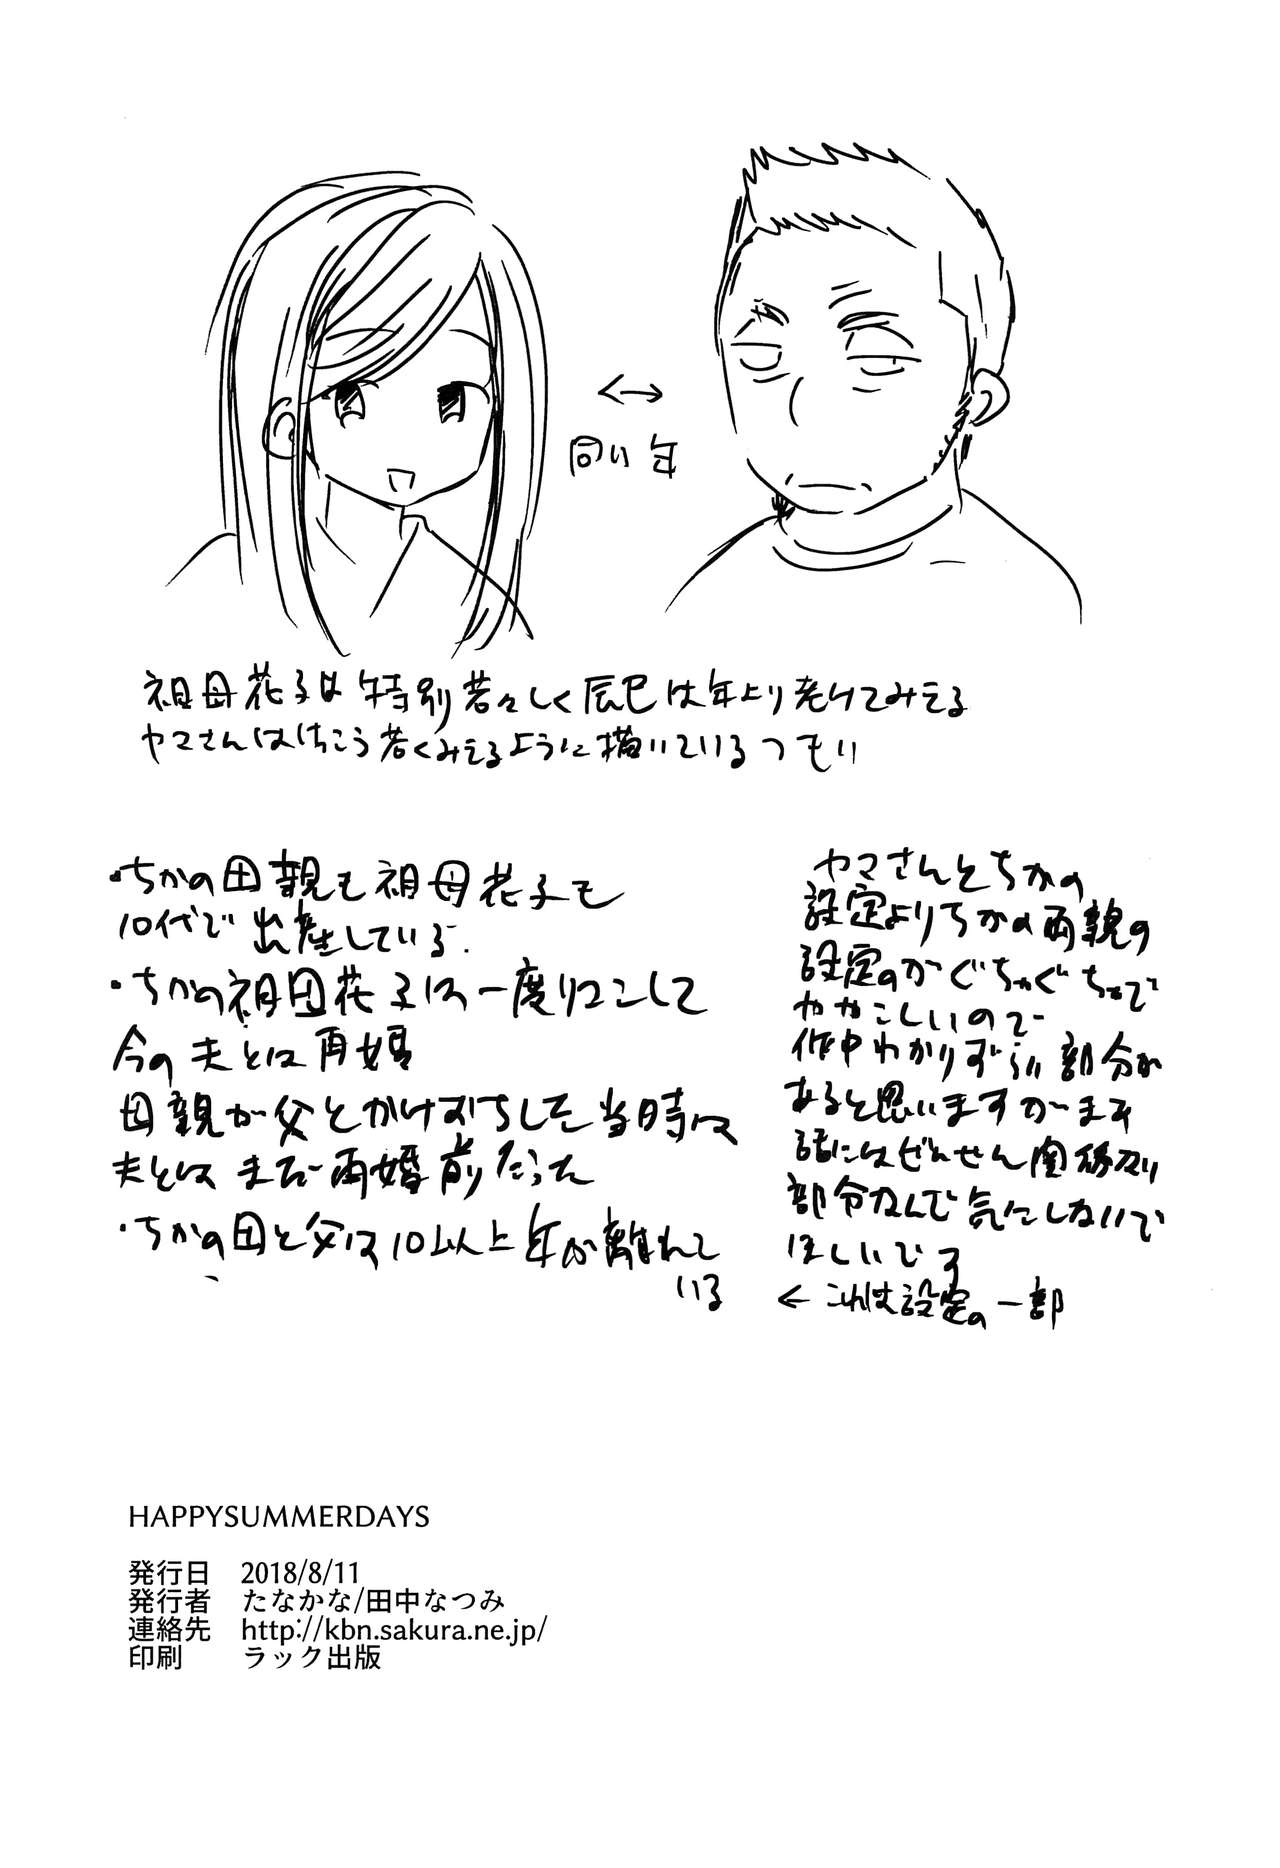 同い年
祖母花子は特別若々しく辰巳は年より老けてみえる
ヤマさんはけっこう若くみえるように描いているつもり
・ちかの母親も祖母花子も
10代で出産している.
・ちかの祖母花子は一度りこんして
今の夫とは再婚
母親が父とかけおちした当時は
夫とはまだ再婚前だった
・ちかの母と父は10以上年が離れて
いる
ヤマさんとちかの
設定よりちかの両親の
設定のがぐちゃぐちゃで
ややこしいので
作中わかりずらい部分が
あると思いますがまぁ
話にはぜんぜん関係ない
部分なんで気にしないで
ほしいです
← これは設定の一部
HAPPYSUMMERDAYS
発行日 2018/8/11
発行者 たなかな/田中なつみ
連絡先 http://kbn.sakura.ne.jp/
印刷 ラック出版